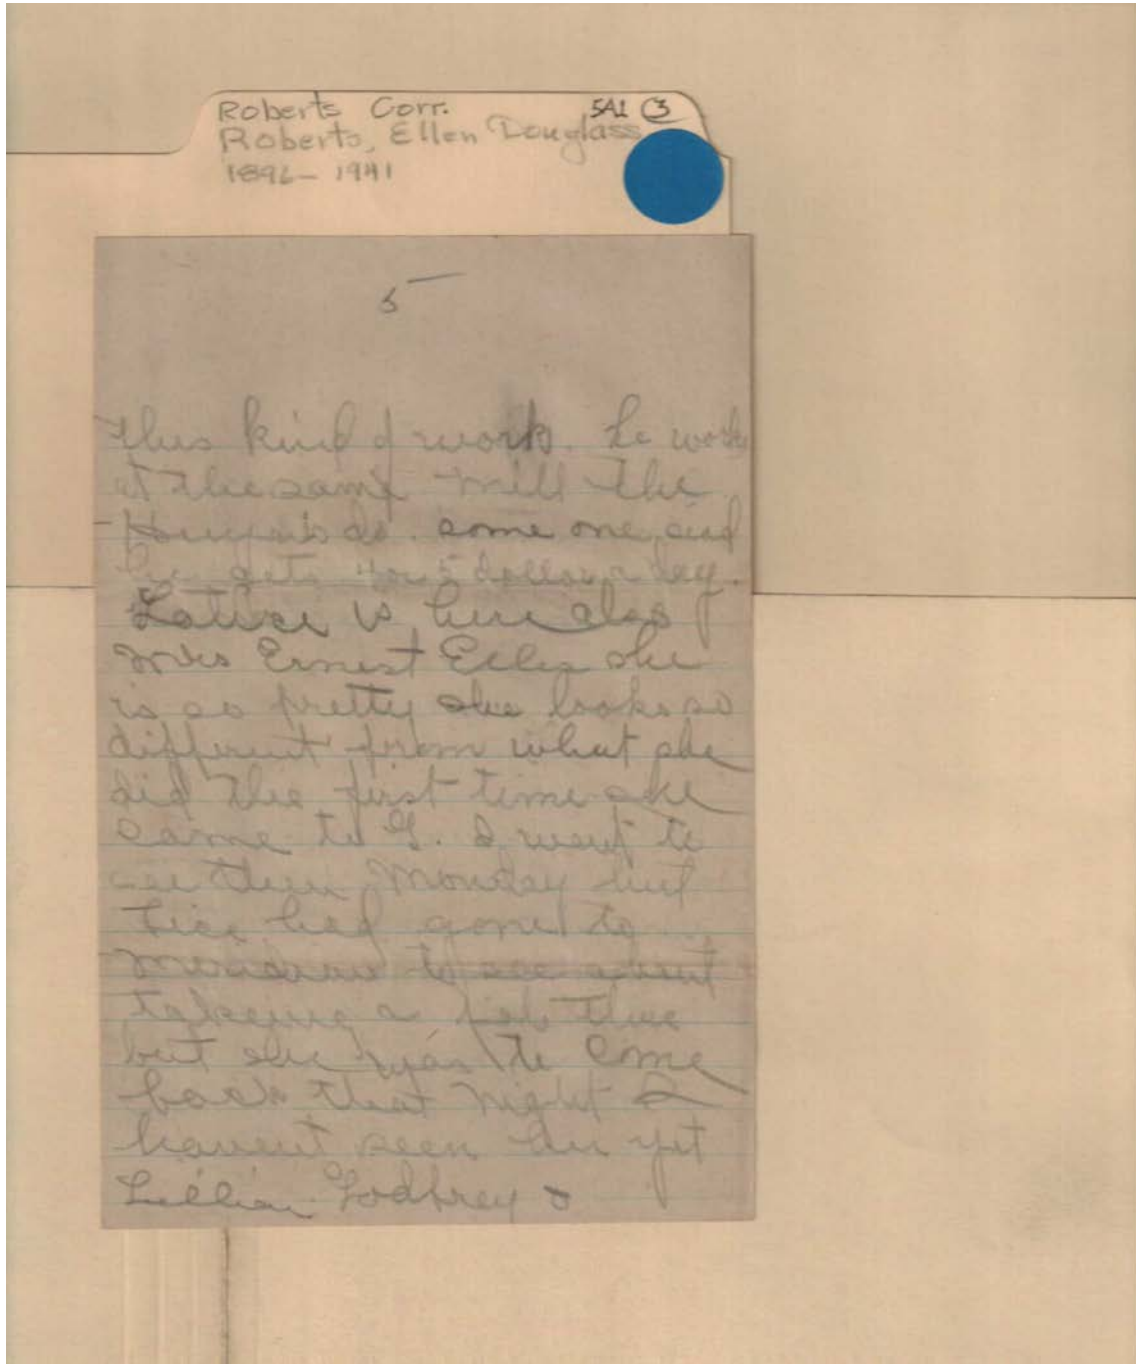 Roberts Corr. 5A1 3
Roberts, Ellen Douglass
1896-1941
5
this kind of work. he works
at the same mill the
do. some one said
he gets 4 or 5 dollars a day.
is here also
Mrs Ernest she
is so pretty she looks so
different from what she
did the first time she
came to G. I went to
see them Monday but
had gone to
Meridian to see about
takeing a job there
but she was to come
back that night I
havent seen her yet
Lillian Godfrey &